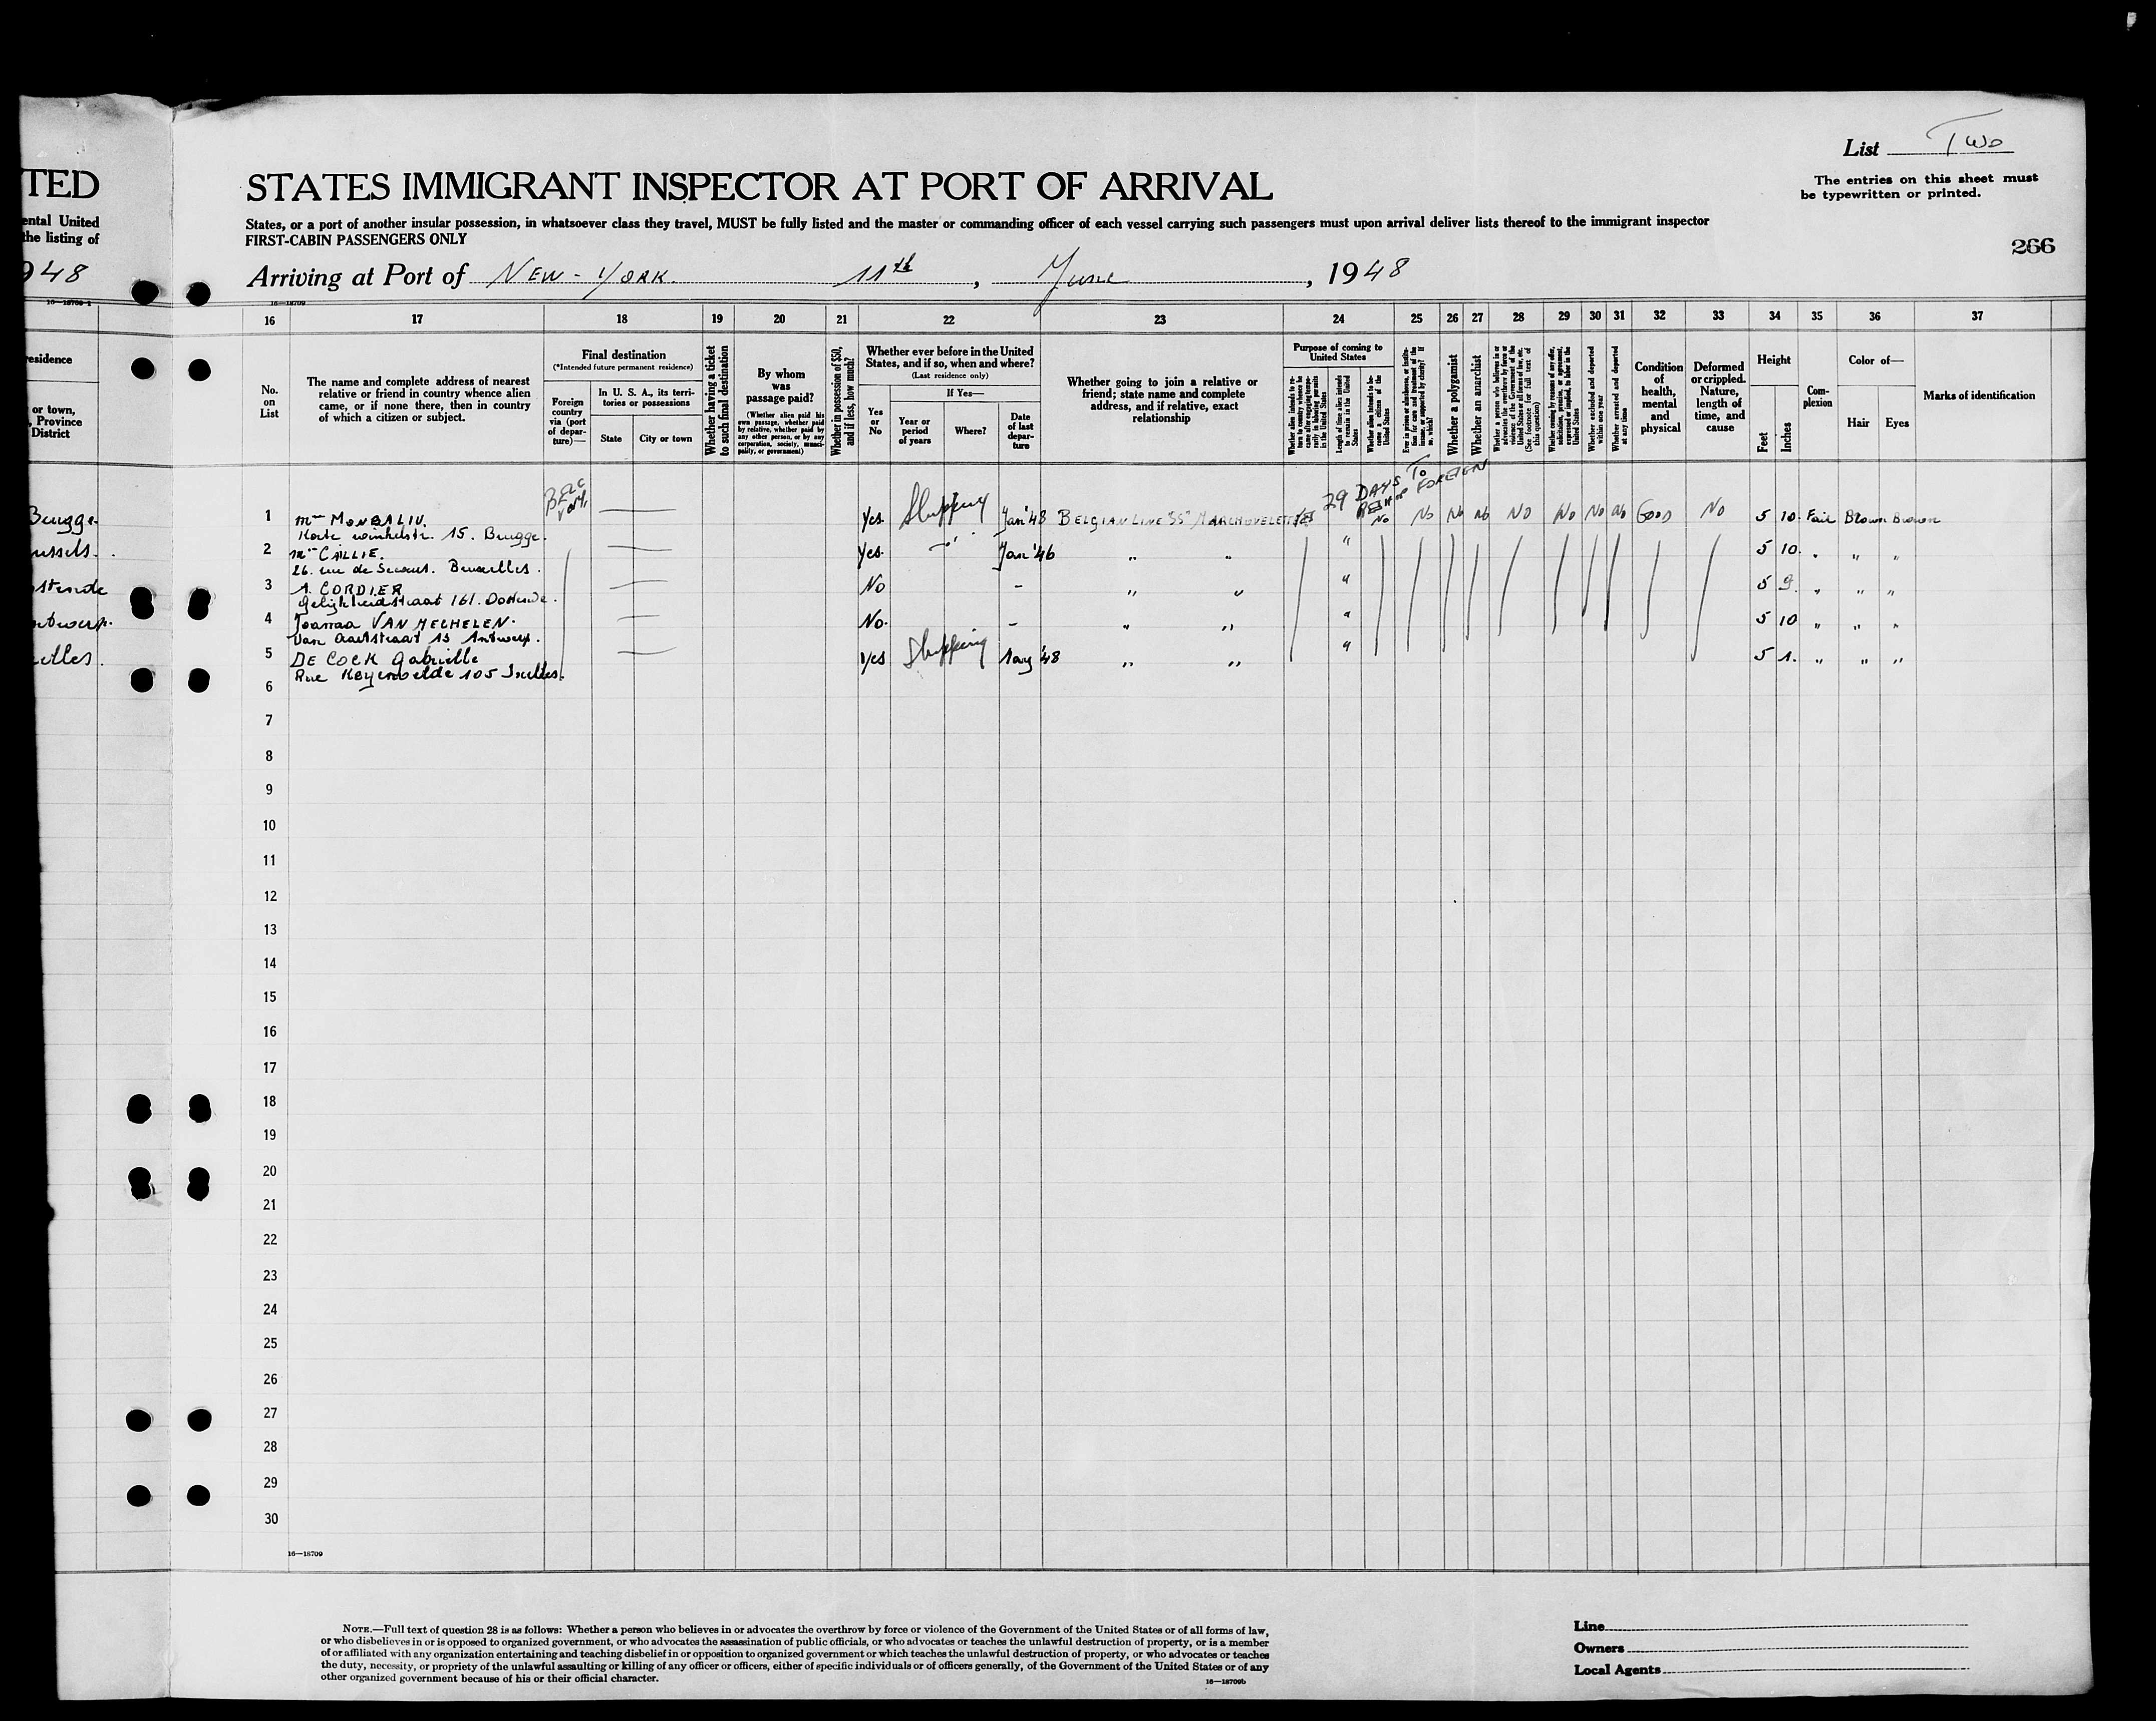 List Two
The entries on this sheet must
be typewritten or printed.
266
TED
STATES IMMIGRANT INSPECTOR AT PORT OF ARRIVAL
ental United
the listing of
States, or a port of another insular possession, in whatsoever class they travel, MUST be fully listed and the master or commanding officer of each vessel carrying such passengers must upon arrival deliver lists thereof to the immigrant inspector
FIRST-CABIN PASSENGERS ONLY
948
Arriving at Port of NEW-YORK. 11th, June, 1948
16—18709
16 17 18 19 20 21 22 23 24 25 26 27 28 29 30 31 32 33 34 35 36 37
esidence
or town,
, Province
District
No.
on
List
The name and complete address of nearest
relative or friend in country whence alien
came, or if none there, then in country
of which a citizen or subject.
Final destination
(*Intended future permanent residence)
Foreign
country
via (port
of depar-
ture)—
In U. S. A., its terri-
tories or possessions
State
City or town
Whether having a ticket
to such final destination
By whom
was
passage paid?
(Whether alien paid his
own passage, whether paid
by relative, whether paid by
any other person, or by any
corporation, society, munici-
pality, or government)
Whether in possession of $50,
and if less, how much?
Whether ever before in the United
States, and if so, when and where?
(Last residence only)
Yes
or
No
If Yes—
Year or
period
of years
Where?
Date
of last
depar-
ture
Whether going to join a relative or
friend; state name and complete
address, and if relative, exact
relationship
Purpose of coming to
United States
Length of time alien intends
to remain in the United
States
Whether alien intends to be-
come a citizen of the
United States
Whether a polygamist
Whether an anarchist
Whether excluded and deported
within one year
Whether arrested and deported
at any time
Condition
of
health,
mental
and
physical
Deformed
or crippled.
Nature,
length of
time, and
cause
Height
Feet
Inches
Com-
plexion
Color of—
Hair
Eyes
Marks of identification
29 DAYS TO FOREIGN
Brugge.
1 Mme MONBALIU. — Yes Shipping Jan '48 BELGIAN LINE SS "MARCHOVELETTE" Yes No No No No No No No No GOOD No 5 10 Fair Brown Brown
15. Brugge.
ussels.
2 Mme CALLIE. — Yes. " Jan '46 " " " 5 10. " " "
26. rue de Secours. Bruxelles.
stende
3 A. CORDIER — No - " " " 5 9. " " "
161. Oostende.
ntwerp.
4 Joanna VAN MECHELEN. — No. - " " " 5 10 " " "
13 Antwerp.
elles.
5 DE COCK Gabrielle — Yes Shipping '48 " " " 5 1. " " "
Rue Keyenvelde 105 Ixelles.
6
7
8
9
10
11
12
13
14
15
16
17
18
19
20
21
22
23
24
25
26
27
28
29
30
16—18709
NOTE.—Full text of question 28 is as follows: Whether a person who believes in or advocates the overthrow by force or violence of the Government of the United States or of all forms of law,
or who disbelieves in or is opposed to organized government, or who advocates the assassination of public officials, or who advocates or teaches the unlawful destruction of property, or is a member
of or affiliated with any organization entertaining and teaching disbelief in or opposition to organized government or which teaches the unlawful destruction of property, or who advocates or teaches
the duty, necessity, or propriety of the unlawful assaulting or killing of any officer or officers, either of specific individuals or of officers generally, of the Government of the United States or of any
other organized government because of his or their official character.
16—18709b
Line
Owners
Local Agents